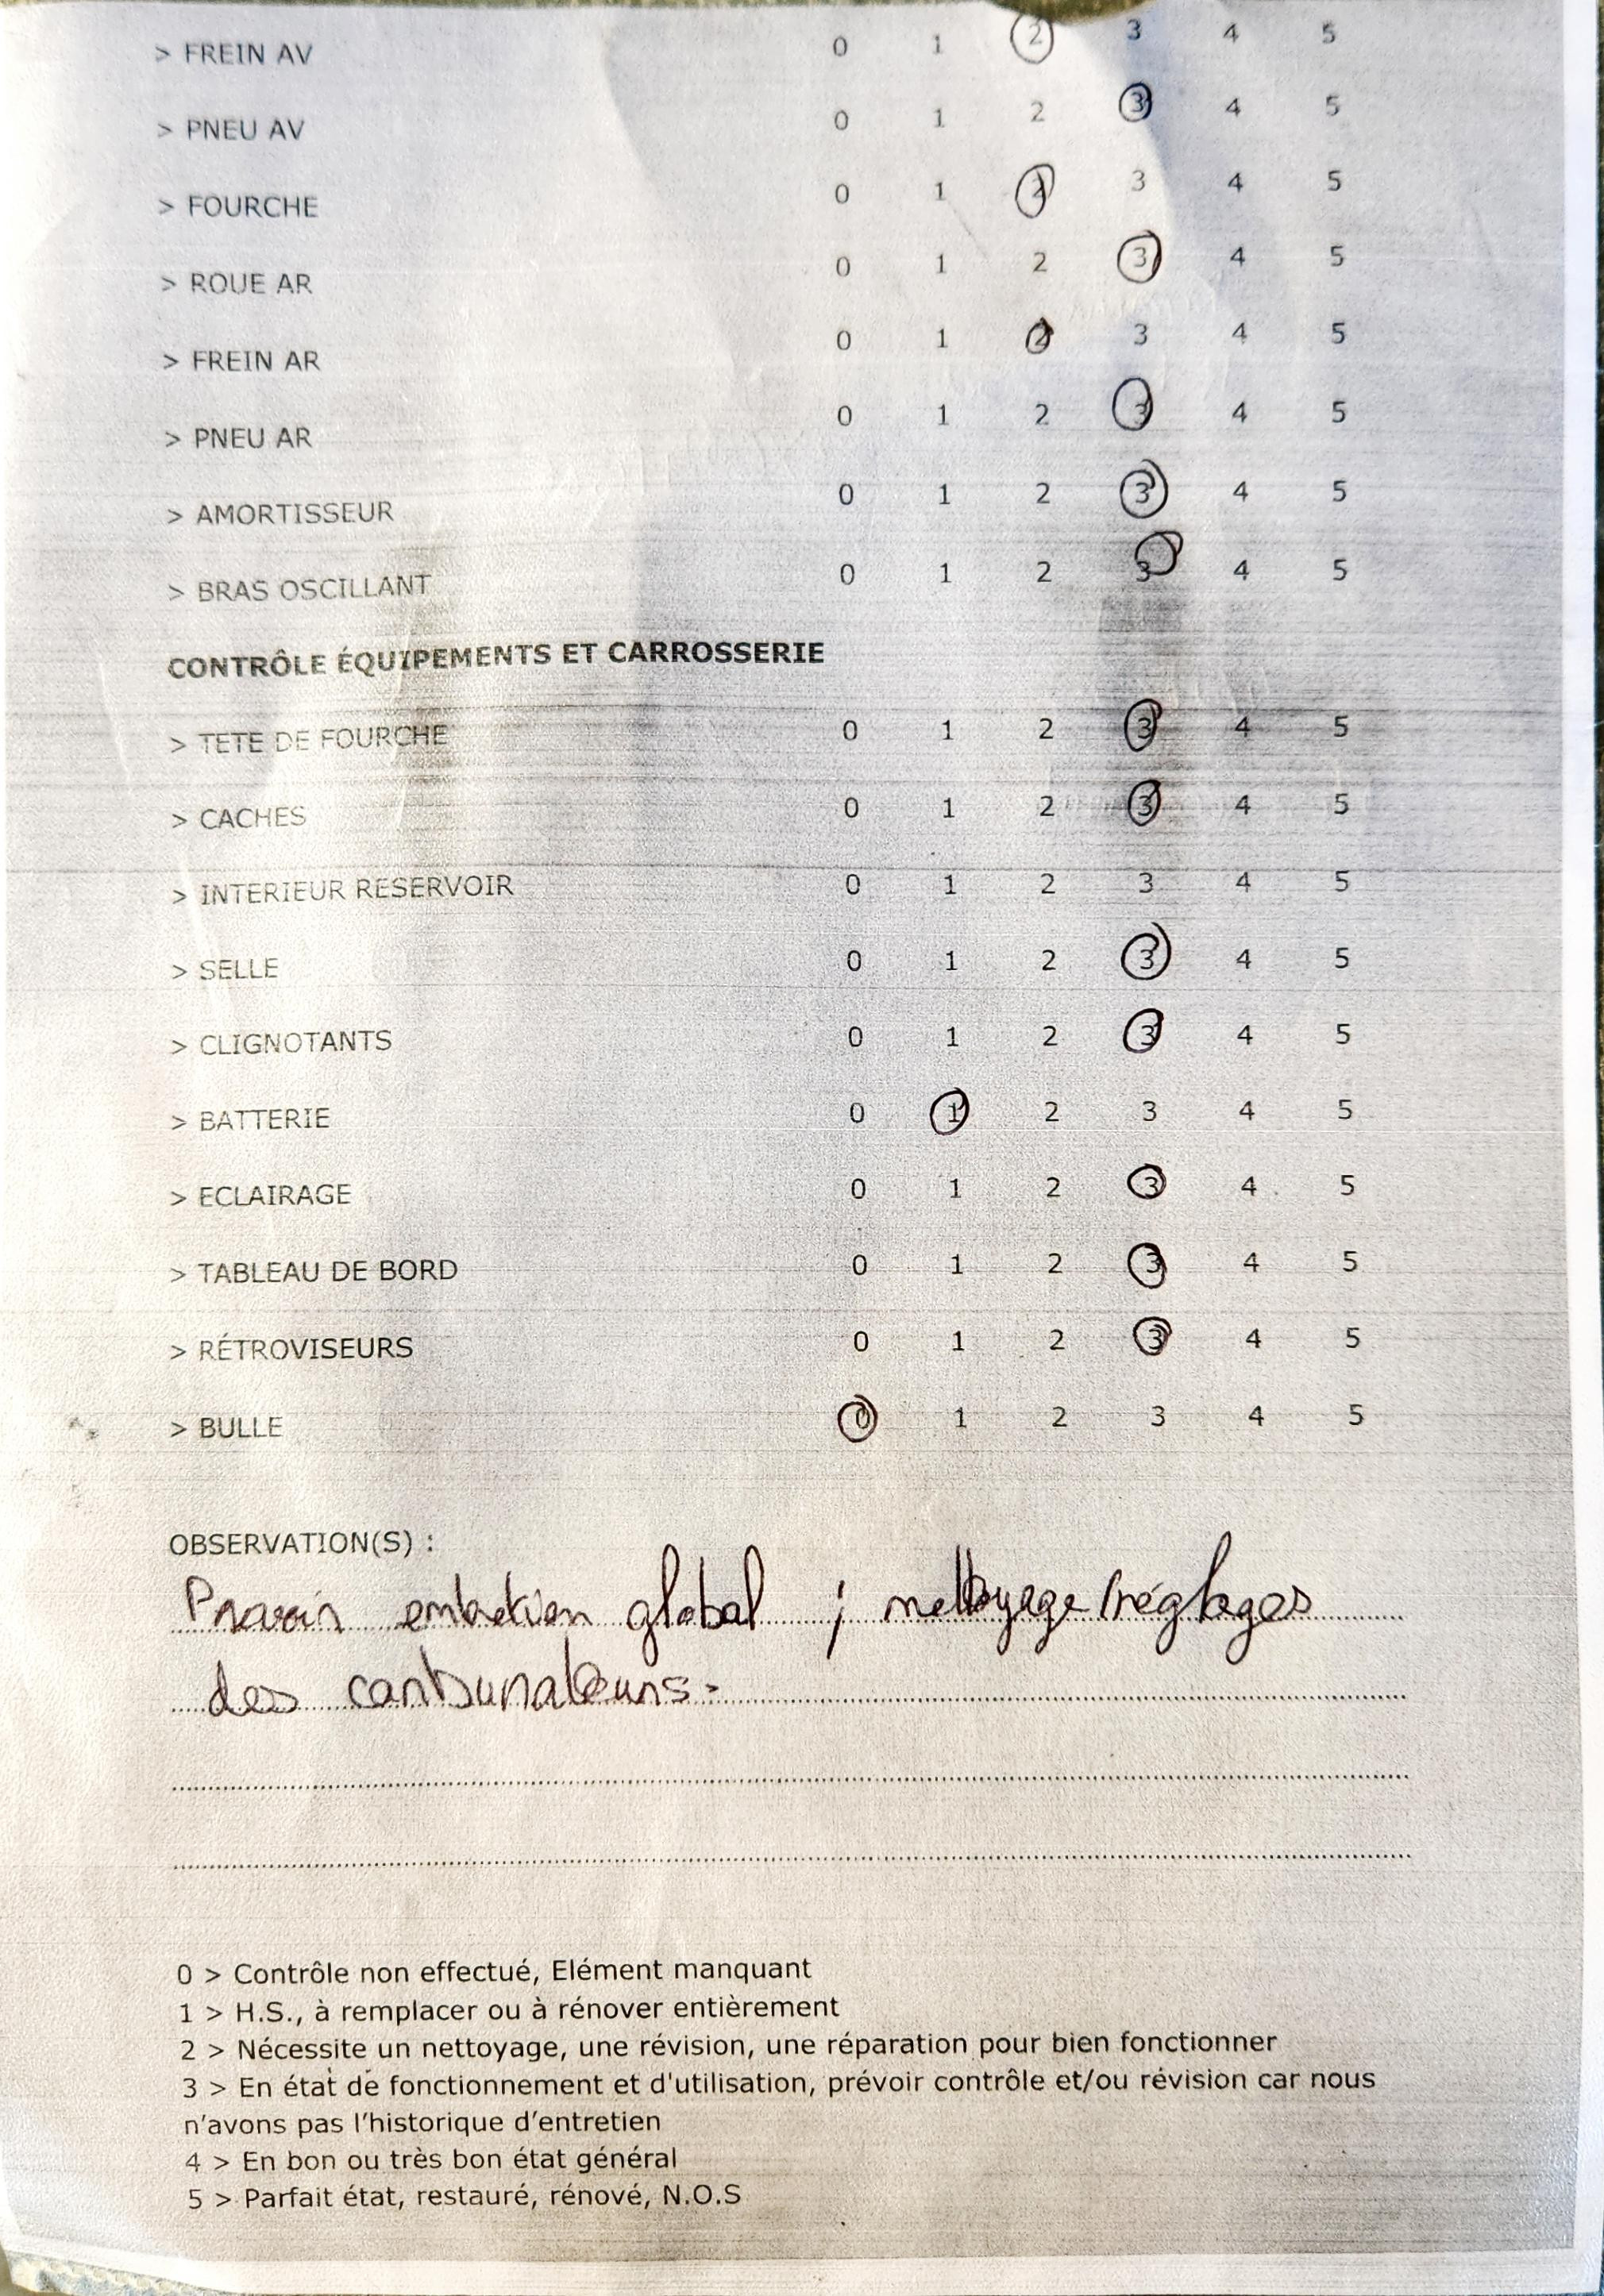 > FREIN AV 0 1 2 3 4 5
> PNEU AV 0 1 2 3 4 5
> FOURCHE 0 1 2 3 4 5
> ROUE AR 0 1 2 3 4 5
> FREIN AR 0 1 2 3 4 5
> PNEU AR 0 1 2 3 4 5
> AMORTISSEUR 0 1 2 3 4 5
> BRAS OSCILLANT 0 1 2 3 4 5
CONTRÔLE ÉQUIPEMENTS ET CARROSSERIE
> TETE DE FOURCHE 0 1 2 3 4 5
> CACHES 0 1 2 3 4 5
> INTERIEUR RESERVOIR 0 1 2 3 4 5
> SELLE 0 1 2 3 4 5
> CLIGNOTANTS 0 1 2 3 4 5
> BATTERIE 0 1 2 3 4 5
> ECLAIRAGE 0 1 2 3 4 5
> TABLEAU DE BORD 0 1 2 3 4 5
> RÉTROVISEURS 0 1 2 3 4 5
> BULLE 0 1 2 3 4 5
OBSERVATION(S) :
Prévoir entretien global ; nettoyage/réglages
des carburateurs.
0 > Contrôle non effectué, Elément manquant
1 > H.S., à remplacer ou à rénover entièrement
2 > Nécessite un nettoyage, une révision, une réparation pour bien fonctionner
3 > En état de fonctionnement et d'utilisation, prévoir contrôle et/ou révision car nous
n'avons pas l'historique d'entretien
4 > En bon ou très bon état général
5 > Parfait état, restauré, rénové, N.O.S